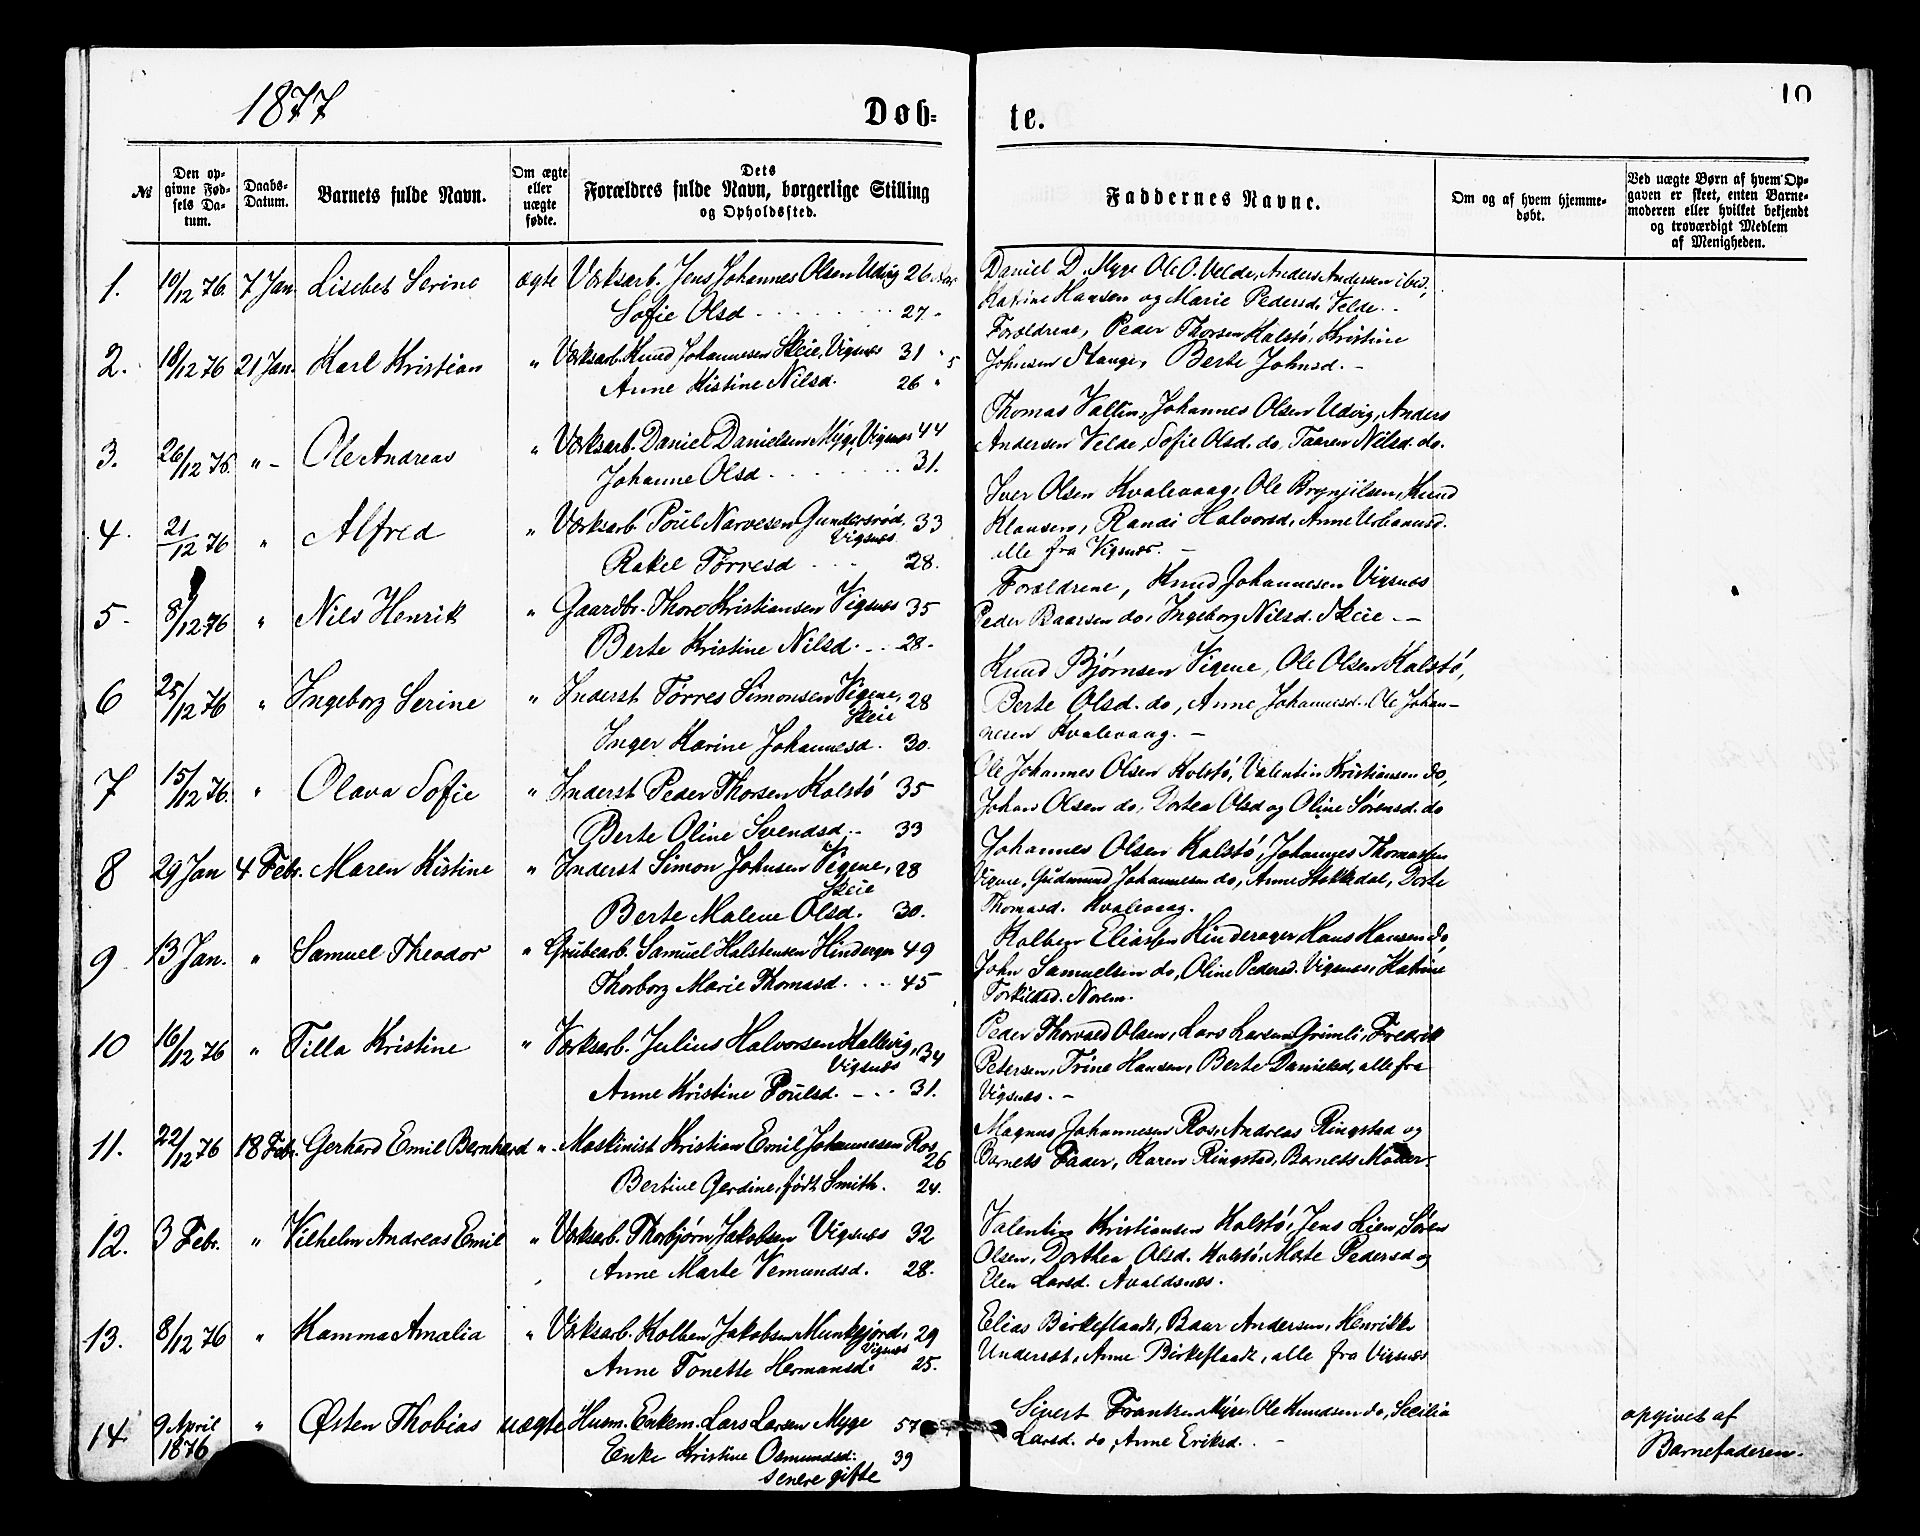 1877
Døb-
te.
10
№
Den opgivne Fødsels Datum.
Daabs-Datum.
Barnets fulde Navn.
Om ægte eller uægte fødte.
Dets Forældres fulde Navn, borgerlige Stilling og Opholdssted.
Faddernes Navne.
Om og af hvem hjemmedøbt.
Ved uægte Børn af hvem Opgaven er skeet, enten Barnemoderen eller hvilket bekjendt og troværdigt Medlem af Menigheden.
1. 19/12 76. 7 Jan. Lisebet Serine ægte Værksarb. Jens Johannes Olsen Udvig 26 Aar
Sofie Olsd 27 "
Daniel D. Myge Ole O. Velde, Anders Andersen ibid,
Katrine Hansen og Marie Pedersd. Velde. -
2. 18/12 76 21 Jan. Karl Kristian " Værksarb. Knud Johannesen Skeie, Vigsnæs 31 "
Anne Kistine Nilsd. 26 "
Forældrene, Peder Thorsen Kalstø, Kristine
Johnsen Stange, Berte Johnsd. -
3. 26/12 76. " - Ole Andreas " Værksarb. Daniel Danielsen Myge, Vigsnæs 44
Johanne Olsd 31.
Thomas Valtin, Johannes Olsen Udvig, Anders
Andersen Velde, Sofie Olsd. do, Taaren Nilsd. do.
4. 21/12 76 " Alfred " Værksarb. Poul Narvesen Gundersrød, 33
Vigsnæs
Rakel Tørresd 28.
Iver Olsen Kvalevaag, Ole Brynjilsen, Knud
Klausen, Randi Halvorsd, Anne Urbanusd.
alle fra Vigsnæs. -
5. 8/12 76 " Nils Henrik " Gaardbr. Thore Kristiansen Vigsnæs 35
Berte Kristine Nilsd. 28.
Forældrene, Knud Johannesen Vigsnæs
Peder Baarsen do, Ingeborg Nilsd. Skeie. -
6 25/12 76 " Ingeborg Serine " Inderst Tørres Simonsen Vigene, 28
Skeie
Inger Karine Johannesd. 30.
Knud Bjørnsen Vigene, Ole Olsen Kalstø,
Berte Olsd. do, Anne Johannesd. Ole Johan-
nesen Kvalevaag. -
7 15/12 76. " Olava Sofie " Inderst Peder Thorsen Kalstø 35
Berte Oline Svendsd. 33
Ole Johannes Olsen Kolstø, Valentin Kristiansen do,
Johan Olsen do, Dortea Olsd og Oline Sørensd. do
8 29 Jan 4 Febr. Maren Kistine " Inderst Simon Johnsen Vigene, 28
Skeie
Berte Malene Olsd. 30.
Johannes Olsen Kalstø, Johannes Thomassen
Vigene, Gudmund Johannesen do, Anne Stokkedal, Dorte
Thomasd. Kvalevaag.
9 13 Jan. " Samuel Theodor " Grubearb. Samuel Halstensen Hinderger 49
Thorborg Marie Thomasd. 45
Kolben Eliassen Hinderager, Hans Hansen do,
John Samuelsen do, Oline Pedersd. Vigsnæs, Katrine
Torkildsd. Norem.
10 16/12 76 " Tilla Kristine " Værksarb. Julius Halvorsen Halkvig, 34
Vigsnæs
Anne Kristine Poulsd. 31.
Peder Thorvald Olsen, Lars Larsen Grimli, Fredrik
Petersen, Trine Hansen, Berte Danielsd, alle fra
Vigsnæs. -
11. 22/12 76 18 Febr. Gerhard Emil Bernhard " Maskinist Kristian Emil Johannesen Ros
26
Bertine Gerdine, født Smith. 24.
Magnus Johannesen Ros, Andreas Ringstad og
Barnets Fader, Karen Ringstad, Barnets Moder.
12. 3 Febr. " Vilhelm Andreas Emil " Værksarb. Thorbjørn Jakobsen Vigsnæs 32
Anne Marte Vemundsd. 28.
Valentin Kristiansen Kolstø, Jens Lien, Søren
Olsen, Dorthea Olsd. Kolstø, Marte Pedersd og
Elen Larsd. Avaldsnæs.
13. 8/12 76 " Hamma Amalia " Værksarb. Kolben Jakobsen Munkejord, 29
Vigsnæs
Anne Tonette Hermansd. 25.
Elias Birkeflaadt, Baar Andersen, Henrikke
Underset, Anne Birkeflaadt, alle fra Vigsnæs
14 9 April 1876 " Østen Thobias uægte Husm. Enkem. Lars Larsen Myge 57
Enke Kristine Osmundsd. 39
senere gifte
Sivert Frantzen Myge, Ole Knudsen do, Secilia
Larsd. do, Anne Eriksd. -
opgivet af
Barnefaderen.